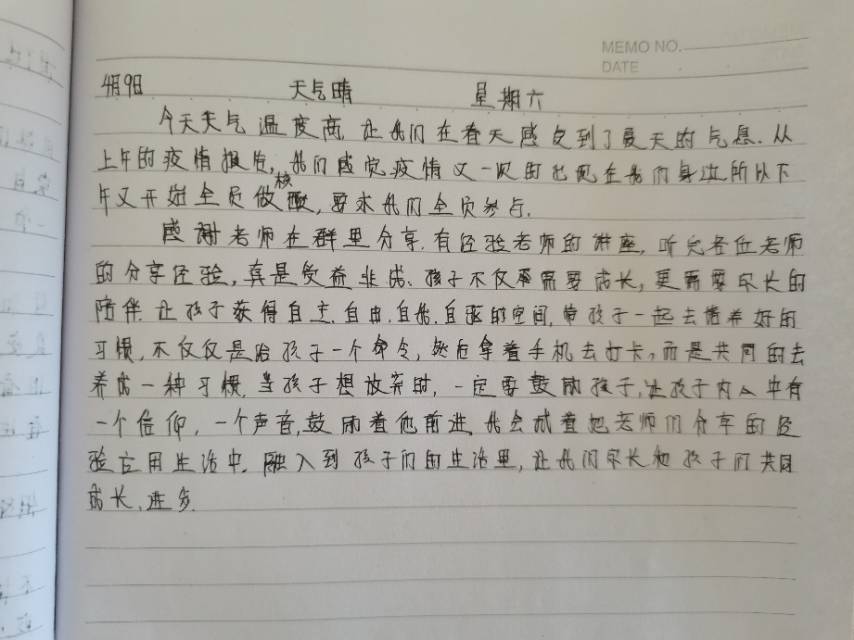 MEMO NO.
DATE
4月9日 天气晴 星期六
今天天气温度高,让我们在春天感受到了夏天的气息.从
上午的疫情报告,我们感觉疫情又一次的出现在我们身边所以下
午又开始全员做核酸,要求我们全员参与.
感谢老师在群里分享.有经验老师的讲座,听完各位老师
的分享经验,真是受益非浅、孩子不仅需要成长,更需要家长的
陪伴.让孩子获得自主.自由.自我.自驱的空间,带孩子一起去培养好的
习惯,不仅仅是给孩子一个命令,然后拿着手机去打卡,而是共同的去
养成一种习惯.当孩子想放弃时,一定要鼓励孩子,让孩子内心中有
一个信仰,一个声音,鼓励着他前进.我会试着把老师们分享的经
验应用生活中.融入到孩子们的生活里,让我们家长和孩子们共同
成长.进步.